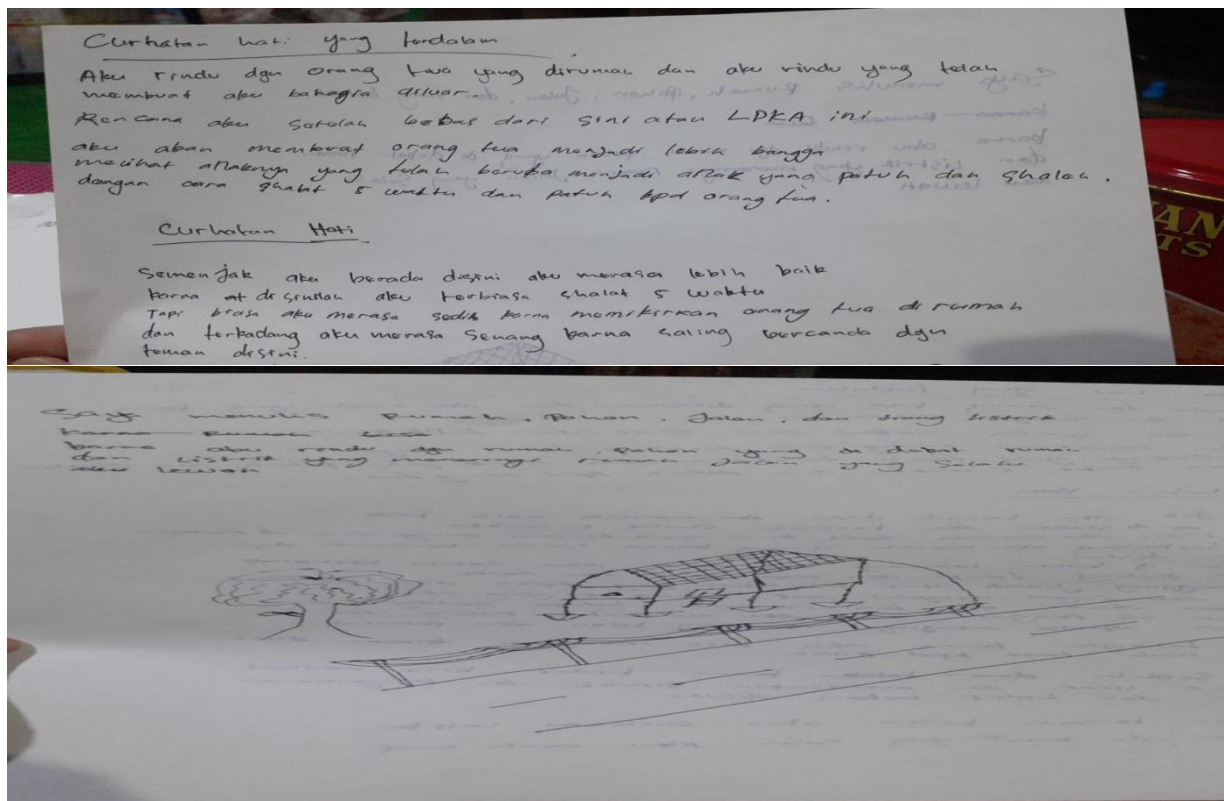 Curhatan hati yang terdalam
Aku rindu dgn orang tua yang dirumah dan aku rindu yang telah
membuat aku bahagia diluar.
Rencana aku setelah bebas dari sini atau LPKA ini
aku akan membuat orang tua menjadi lebih bangga
melihat anaknya yang telah berubah menjadi anak yang patuh dan shaleh.
dengan cara shalat 5 waktu dan patuh kpd orang tua.
Curhatan Hati
Semenjak aku berada disini aku merasa lebih baik
karna disinilah aku terbiasa shalat 5 waktu
Tapi biasa aku merasa sedih karna memikirkan orang tua di rumah
dan terkadang aku merasa senang karna saling bercanda dgn
teman disini.
Saya menulis Rumah, Pohon, Jalan, dan tiang listrik
karna Rumah
karna aku rindu dgn rumah, Pohon yang di dekat rumah
dan Listrik yang menerangi rumah Jalan yang Selalu
aku lewati
AN
TS